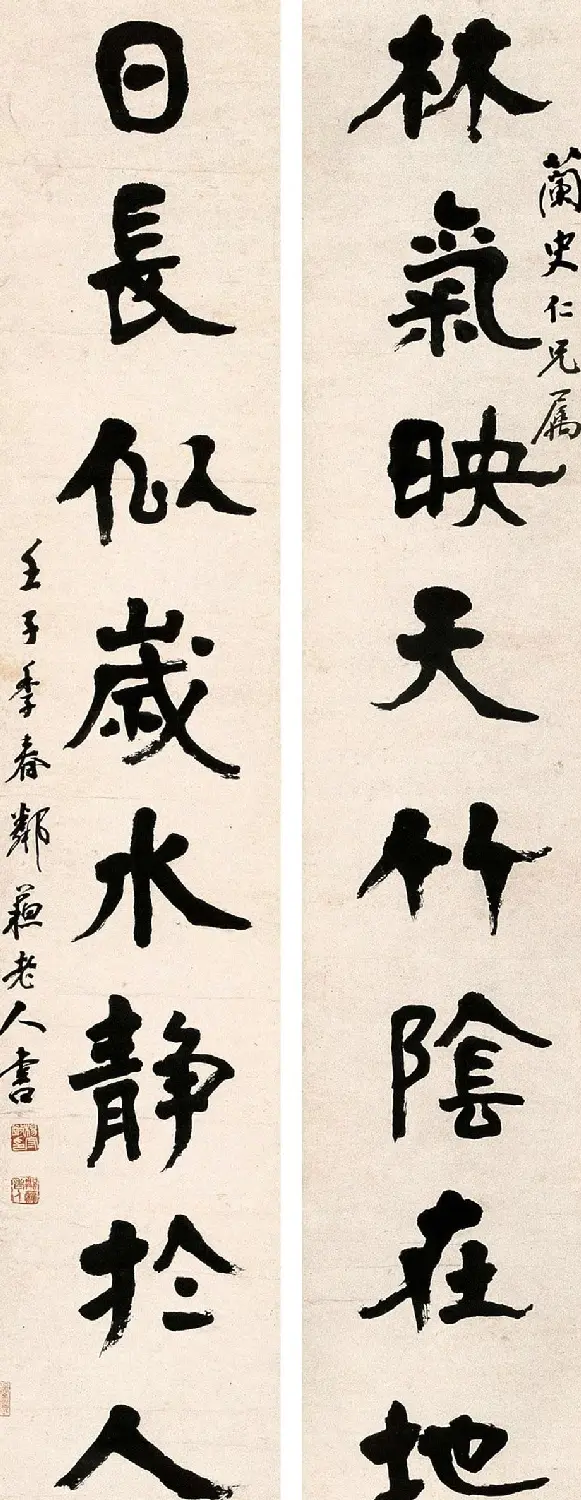 林氣映天竹陰在地
蘭史仁兄属
日長似歲水靜於人
壬子季春鄰蘓老人書